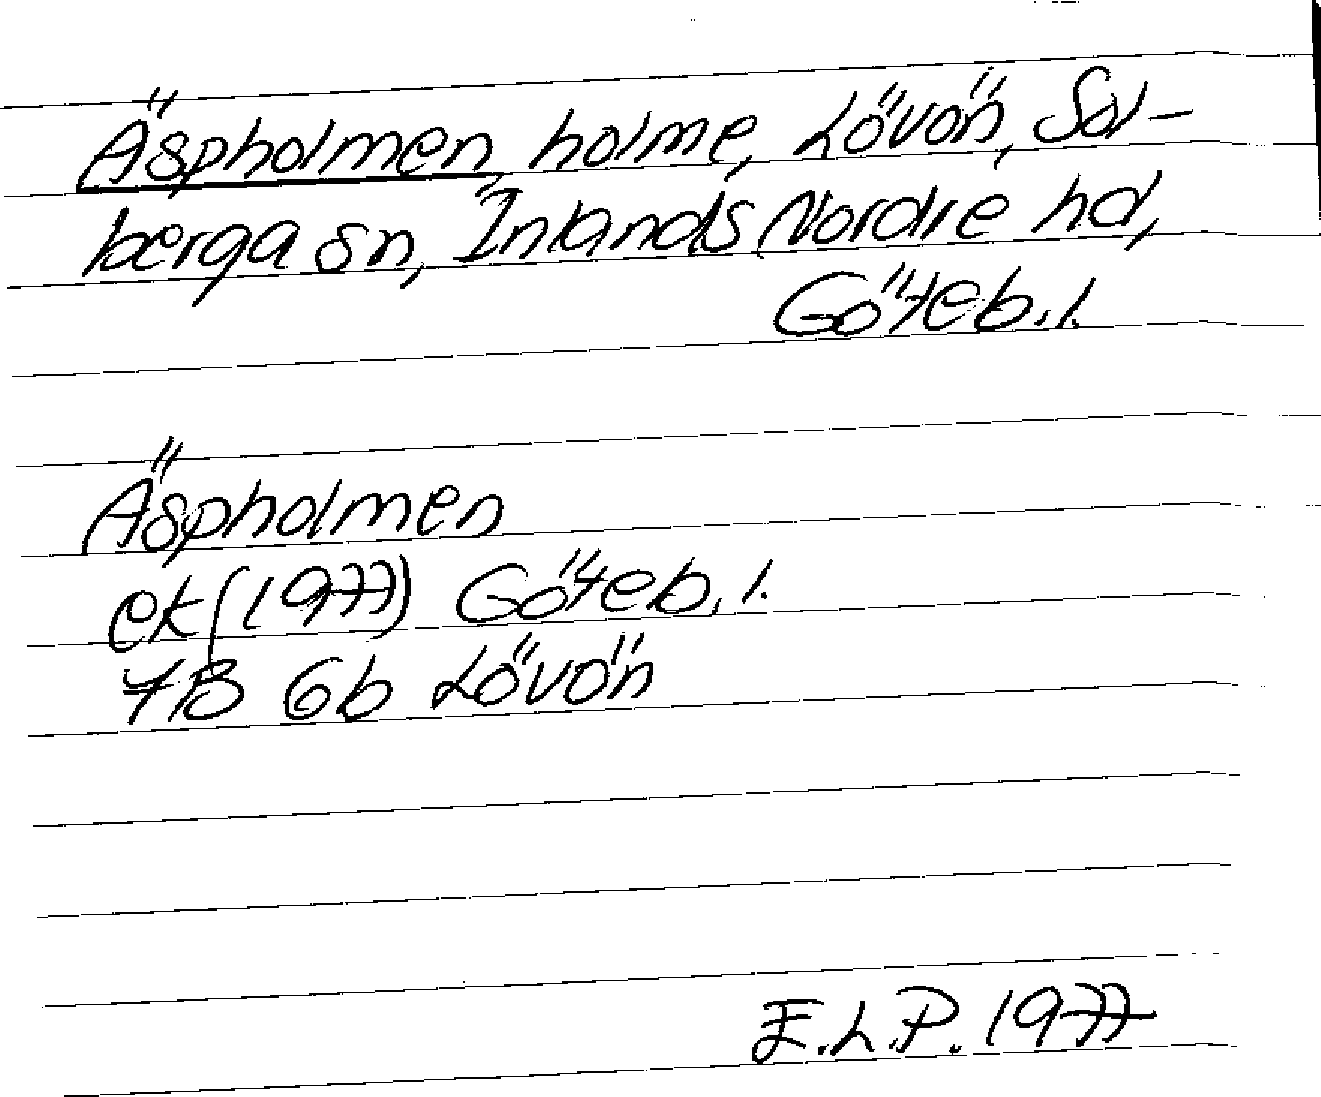 Äspholmen, holme, Lövön, Sol-
berga sn, Inlands Nordre hd,
Göteb. l.
Äspholmen
ek (1977) Göteb. l.
7B 6b Lövön
E.L.P. 1977